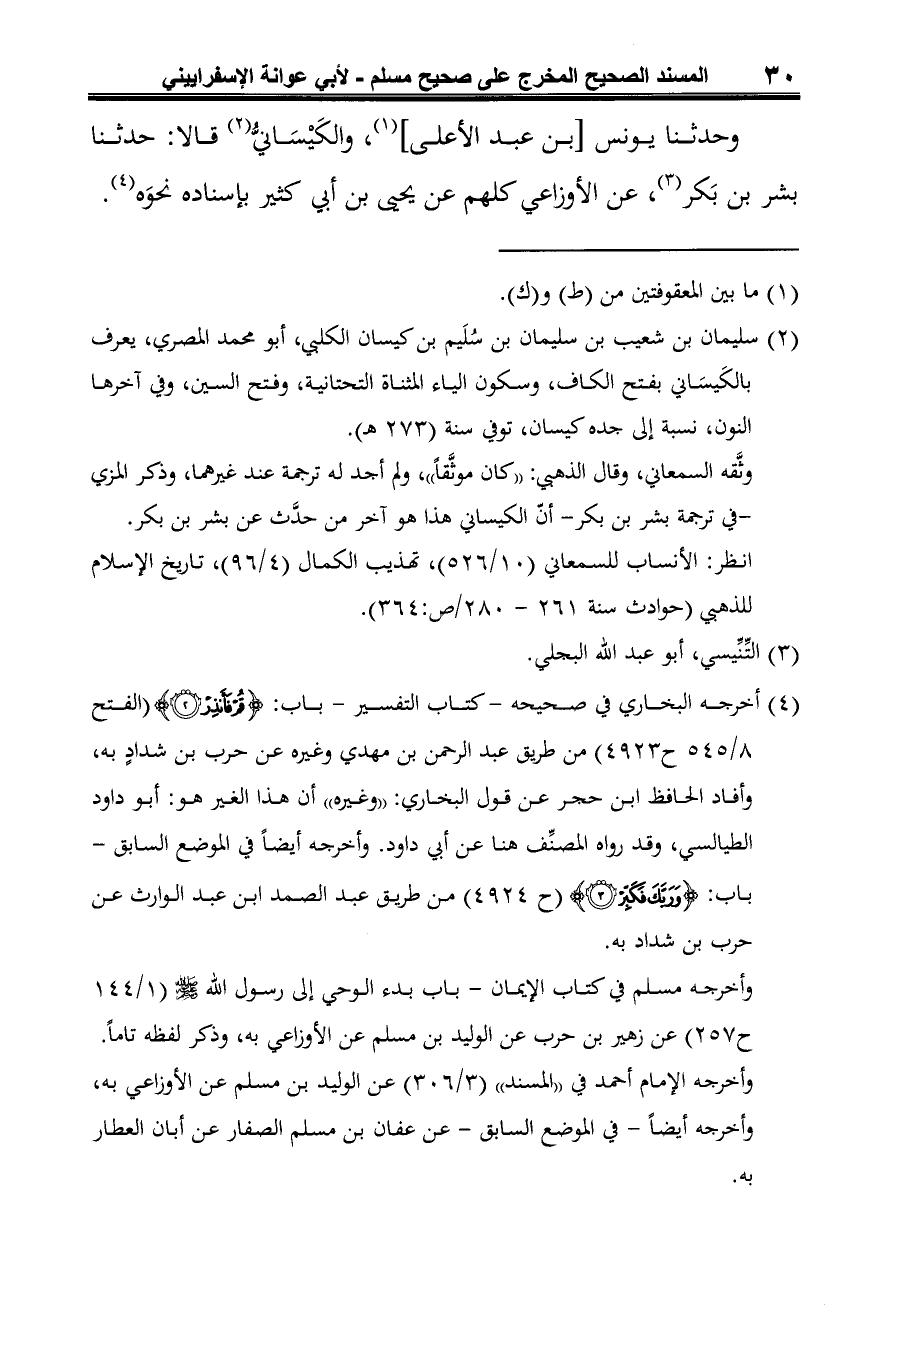 ٣٠ المسند الصحيح المخرج على صحيح مسلم - لأبي عوانة الإسفراييني
وحدثنا يونس [بن عبد الأعلى](١)، والكَيْسَانيُّ(٢) قالا: حدثنا
بشر بن بَكر(٣)، عن الأوزاعي كلهم عن يحيى بن أبي كثير بإسناده نحوَه(٤).
(١) ما بين المعقوفتين من (ط) و(ك).
(٢) سليمان بن شعيب بن سليمان بن سُلَيم بن كيسان الكلبي، أبو محمد المصري، يعرف
بالكَيسَاني بفتح الكاف، وسكون الياء المثناة التحتانية، وفتح السين، وفي آخرها
النون، نسبة إلى جده كيسان، توفي سنة (٢٧٣ هـ).
وثَّقه السمعاني، وقال الذهبي: «كان موثَّقاً»، ولم أجد له ترجمة عند غيرهما، وذكر المزي
-في ترجمة بشر بن بكر- أنّ الكيساني هذا هو آخر من حدَّث عن بشر بن بكر.
انظر: الأنساب للسمعاني (٥٢٦/١٠)، تهذيب الكمال (٩٦/٤)، تاريخ الإسلام
للذهبي (حوادث سنة ٢٦١ - ٢٨٠/ص:٣٦٤).
(٣) التِّنِّيسي، أبو عبد الله البجلي.
(٤) أخرجه البخاري في صحيحه - كتاب التفسير - باب: ﴿قُرْفَأَنذِرْ ٢﴾ (الفتح
٥٤٥/٨ ح٤٩٢٣) من طريق عبد الرحمن بن مهدي وغيره عن حرب بن شدادٍ به،
وأفاد الحافظ ابن حجر عن قول البخاري: «وغيره» أن هذا الغير هو: أبو داود
الطيالسي، وقد رواه المصنِّف هنا عن أبي داود. وأخرجه أيضاً في الموضع السابق -
باب: ﴿وَرَبَّكَ فَكَبِّرْ ٣﴾ (ح ٤٩٢٤) من طريق عبد الصمد ابن عبد الوارث عن
حرب بن شداد به.
وأخرجه مسلم في كتاب الإيمان - باب بدء الوحي إلى رسول الله ﷺ (١٤٤/١
ح٢٥٧) عن زهير بن حرب عن الوليد بن مسلم عن الأوزاعي به، وذكر لفظه تاماً.
وأخرجه الإمام أحمد في «المسند» (٣٠٦/٣) عن الوليد بن مسلم عن الأوزاعي به،
وأخرجه أيضاً - في الموضع السابق - عن عفان بن مسلم الصفار عن أبان العطار
به.